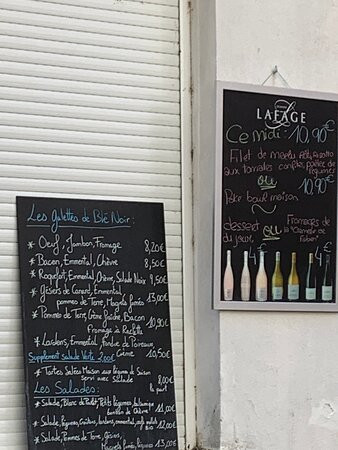 Les Galettes de Blé Noir :
* Oeuf, Jambon, Fromage 8,20€
* Bacon, Emmental, Chèvre 8,50€
* Roquefort, Emmental, Crème, Salade Noix 9,50€
* Gésiers de Canard, Emmental,
pommes de Terre, Magrets fumés 13,00€
* Pommes de Terre, Crème fraîche, Bacon
Fromage à Raclette 10,90€
* Lardons, Emmental, fondue de Poireaux
Crème 10,50€
Supplément salade Verte 2,00€
* Tartes Salées Maison aux légumes de Saison
servi avec Salade 8,00€
la part
Les Salades :
* Salade, Blanc de Poulet, Petits légumes, balsamique
de Chèvre 11,00€
* Salade, légumes, Croûtons, lardons, emmental,
12,00€
* Salade, Pommes de Terre, Gésiers,
Magrets fumés, légumes 13,00€
LAFAGE
Ce midi : 10,90€
Filet de merlu Risotto
aux tomates confites, poêlée de
légumes
ou 10,90€
Poke bowl maison
dessert
du jour
ou
Fromages de
la
4€
4€